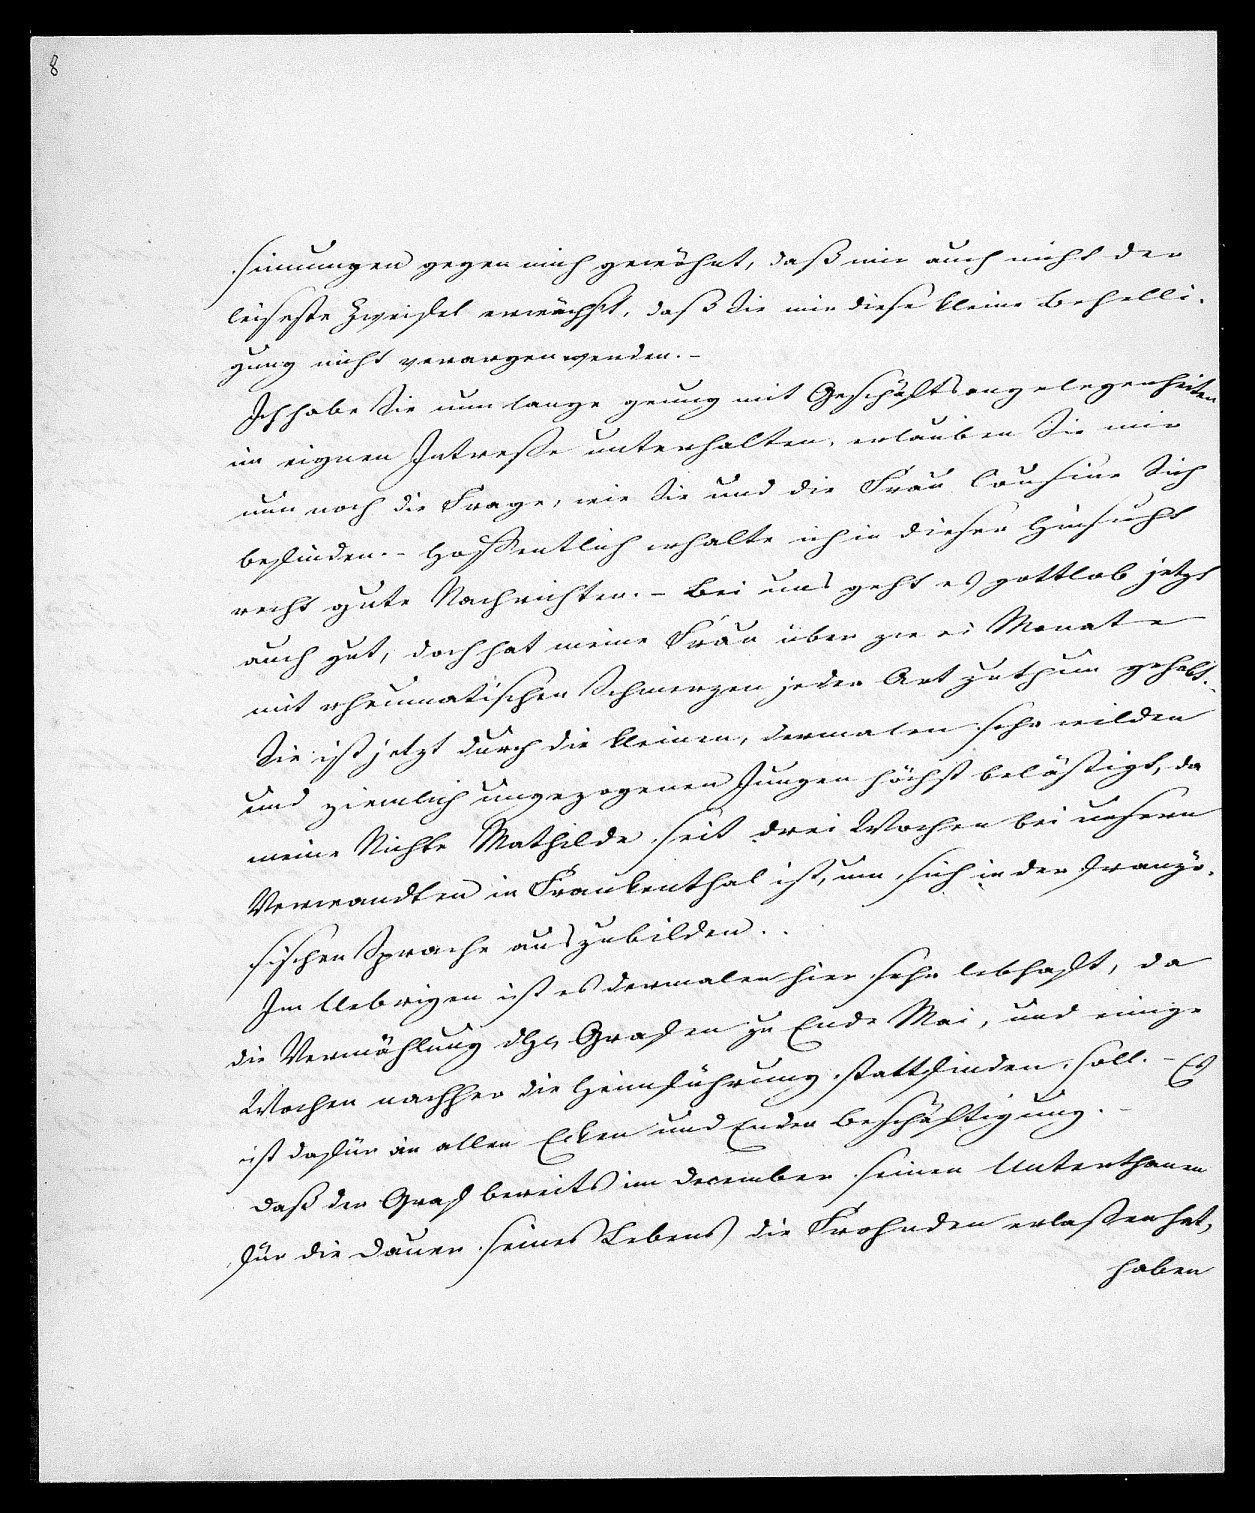 8
sinnungen gegen mich gewöhnt, daß mir auch nicht der
leiseste Zweifel erwächst, daß Sie mir diese kleine Behelli-
gung nicht verargen werden. –
Ich habe Sie nun lange genug mit Geschäftsangelegenheiten
im eignen Intresse unterhalten, erlauben Sie mir
nun noch die Frage, wie Sie und die Frau Cousine Sich
befinden. – Hoffentlich erhalte ich in dieser Hinsicht
recht gute Nachrichten. – Bei uns geht es gottlob jetzt
auch gut, doch hat meine Frau über zwei Monate
mit rheumatischen Schmerzen jeder Art zuthun gehabt. –
Sie ist jetzt durch die kleinen, dermalen sehr wilden
und ziemlich ungezogenen Jungen höchst belästigt, da
meine Nichte Mathilde seit drei Wochen bei unsern
Verwandten in Frankenthal ist, um sich in der franzö-
sischen Sprache auszubilden. .
Im Uebrigen ist es dermalen hier sehr lebhaft, da
die Vermählung des Grafen zu Ende Mai, und einige
Wochen nachher die Heimführung stattfinden soll. – Es
ist dafür an allen Ecken und Enden Beschäftigung. –
Daß der Graf bereits im December seinen Unterthanen
für die Dauer seines Lebens die Frohnden erlassen hat,
haben